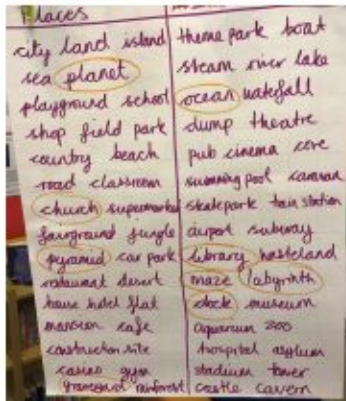 Places
city land island
sea planet
playground school
shop field park
country beach
road classroom
church supermarket
fairground jungle
pyramid car park
restaurant desert
house hotel flat
mansion cafe
construction site
casino gym
graveyard rainforest
theme park boat
steam river lake
ocean waterfall
dump theatre
pub cinema cave
swimming pool caravan
skatepark train station
airport subway
library wasteland
maze labyrinth
dock museum
aquarium zoo
hospital asylum
stadium tower
castle cavern